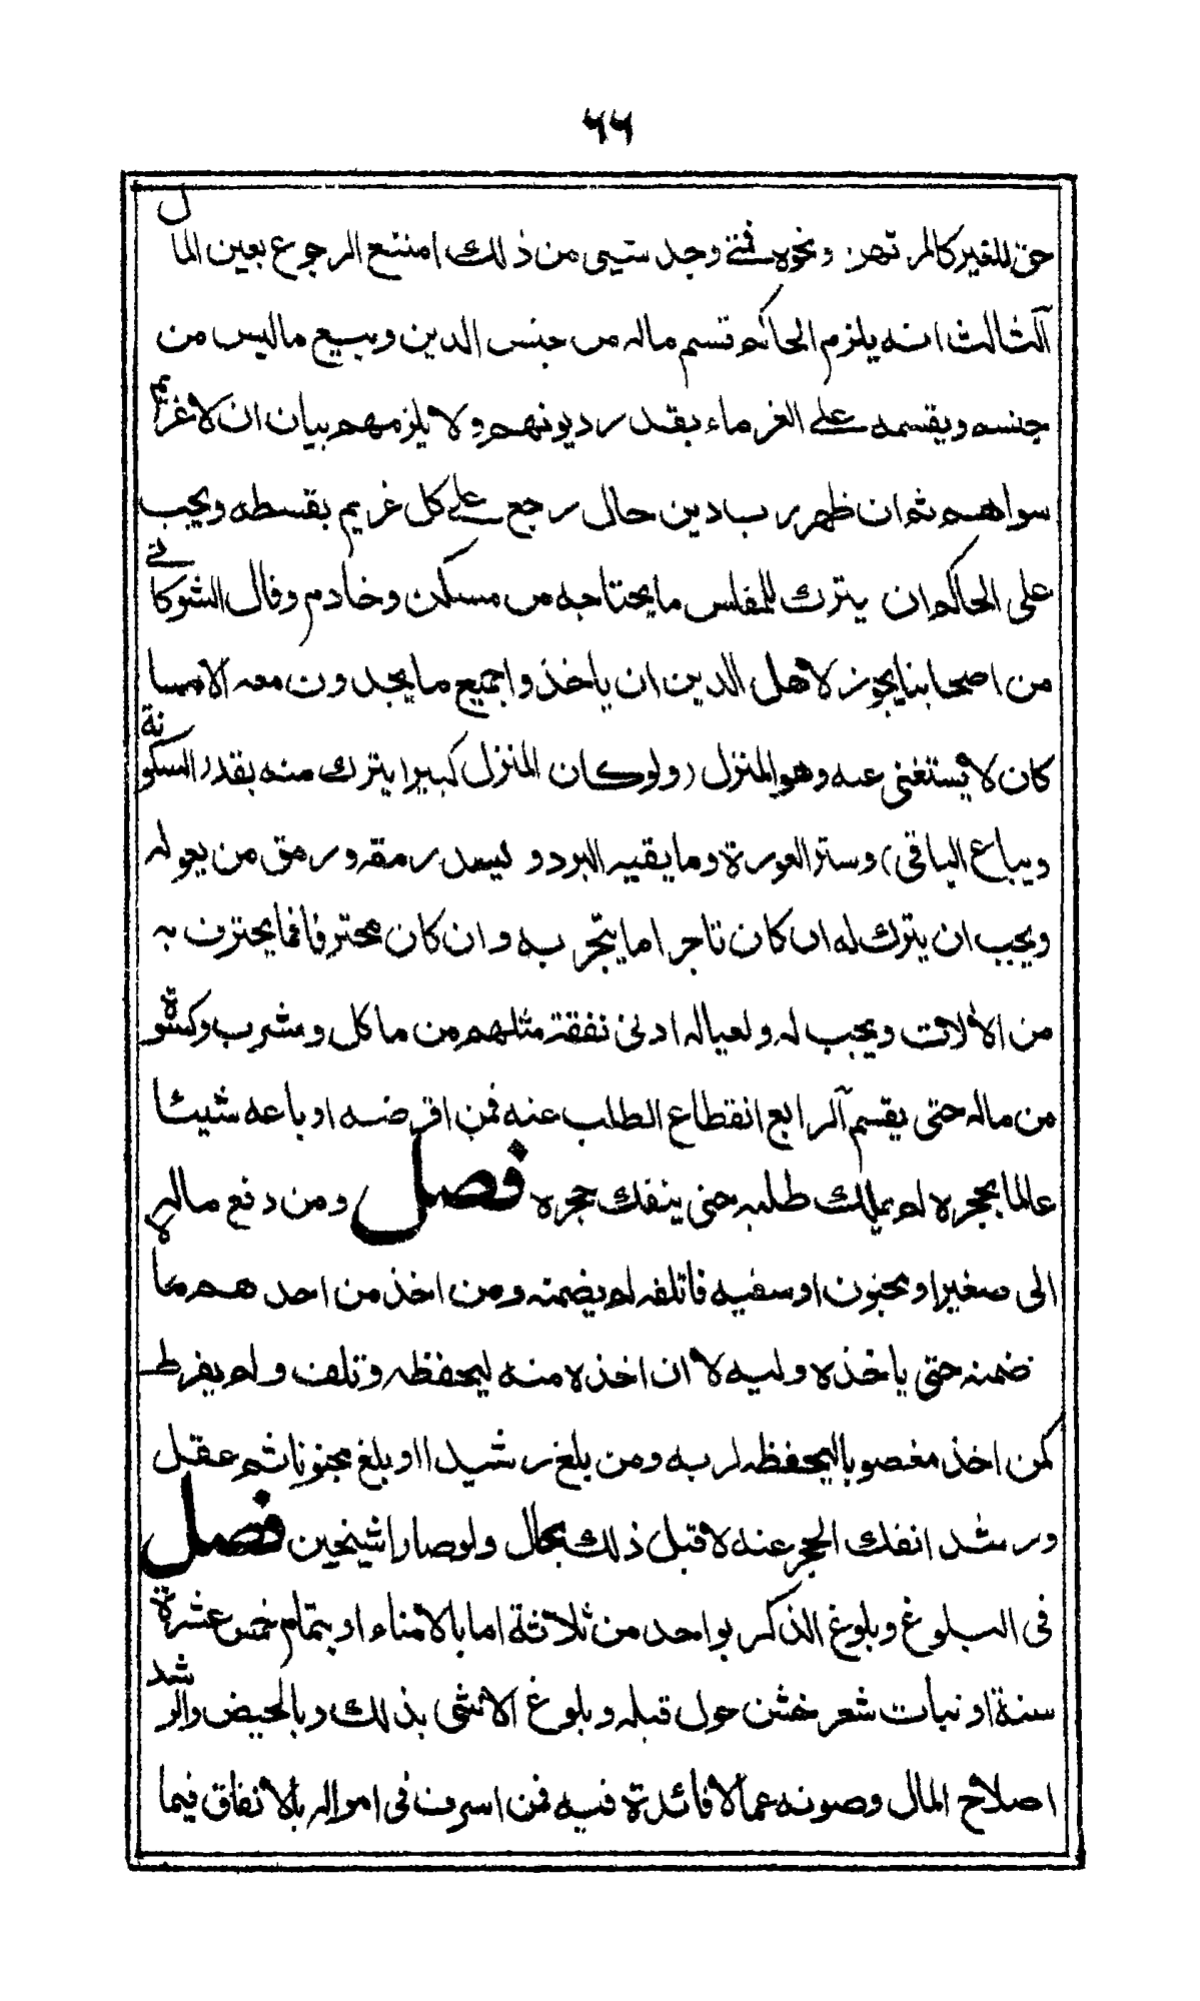 ٦٦
حق للغير كالمرتهن ونحوه فمتى وجد شيئ من ذلك امتنع الرجوع بعين المال
الثالث انه يلزم الحاكم قسم ماله من جنس الدين وبيع ما ليس من
جنسه ويقسمه على الغرماء بقدر ديونهم ولا يلزمهم بيان ان لا غريم
سواهم ثم ان ظهر رب دين حال رجع على كل غريم بقسطه ويجب
على الحاكم ان يترك للمفلس ما يحتاجه من مسكن وخادم وقال الشوكاني
من اصحابنا يجوز لاهل الدين ان ياخذوا جميع ما يجدون معه الا ما
كان لا يستغنى عنه وهو المنزل (ولو كان المنزل كبيرا يترك منه بقدر السكونة
ويباع الباقي) وستر العورة وما يقيه البرد و يسد رمقه ورمق من يعوله
ويجب ان يترك له ان كان تاجرا ما يتجر به وان كان محترفا فما يحترف به
من الآلات ويجب له ولعياله ادنى نفقة مثلهم من ماكل ومشرب وكسوة
من ماله حتى يقسم الرابع انقطاع الطلب عنه فمن اقرضه او باعه شيئا
عالما بحجره لم يملك طلبه حتى ينفك حجره فصل ومن دفع ماله
الى صغير او مجنون او سفيه فاتلفه لم يضمنه ومن اخذ من احدهم مالا
ضمنه حتى ياخذه وليه لا ان اخذه منه ليحفظه وتلف ولم يفرط
كمن اخذ مغصوبا ليحفظه لربه ومن بلغ رشيدا او بلغ مجنونا ثم عقل
ورشد انفك الحجر عنه لا قبل ذلك بحال ولو صارا شيخين فصل
في البلوغ وبلوغ الذكر بواحد من ثلاثة اما بالامناء او بتمام خمس عشرة
سنة او نبات شعر خشن حول قبله وبلوغ الانثى بذلك وبالحيض والرشد
اصلاح المال وصونه عما لا فائدة فيه فمن اسرف في امواله بالانفاق فيما